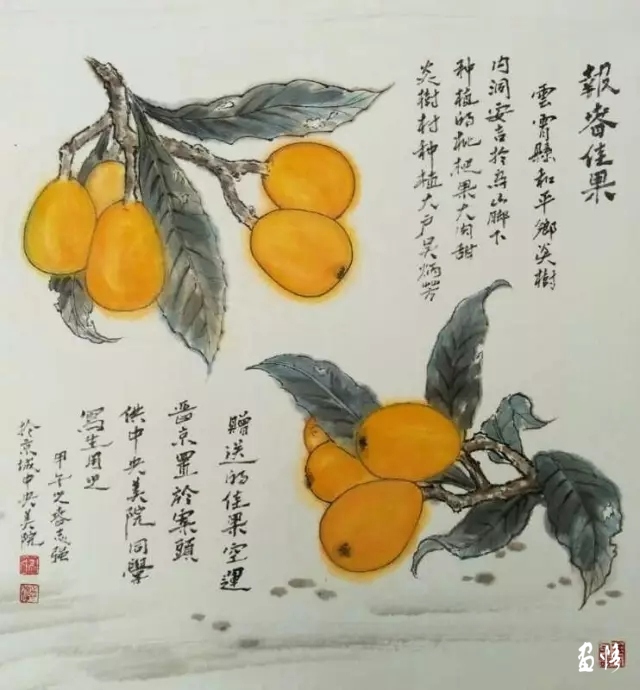 報春佳果
雲霄縣和平鄉炎樹
内洞 於烏山脚下
种植的枇杷果大肉甜
炎樹村种植大户吴炳芳
贈送的佳果空運
晋京置於案頭
供中央美院同學
寫生用之
甲午之春志强
於京城中央美院
画